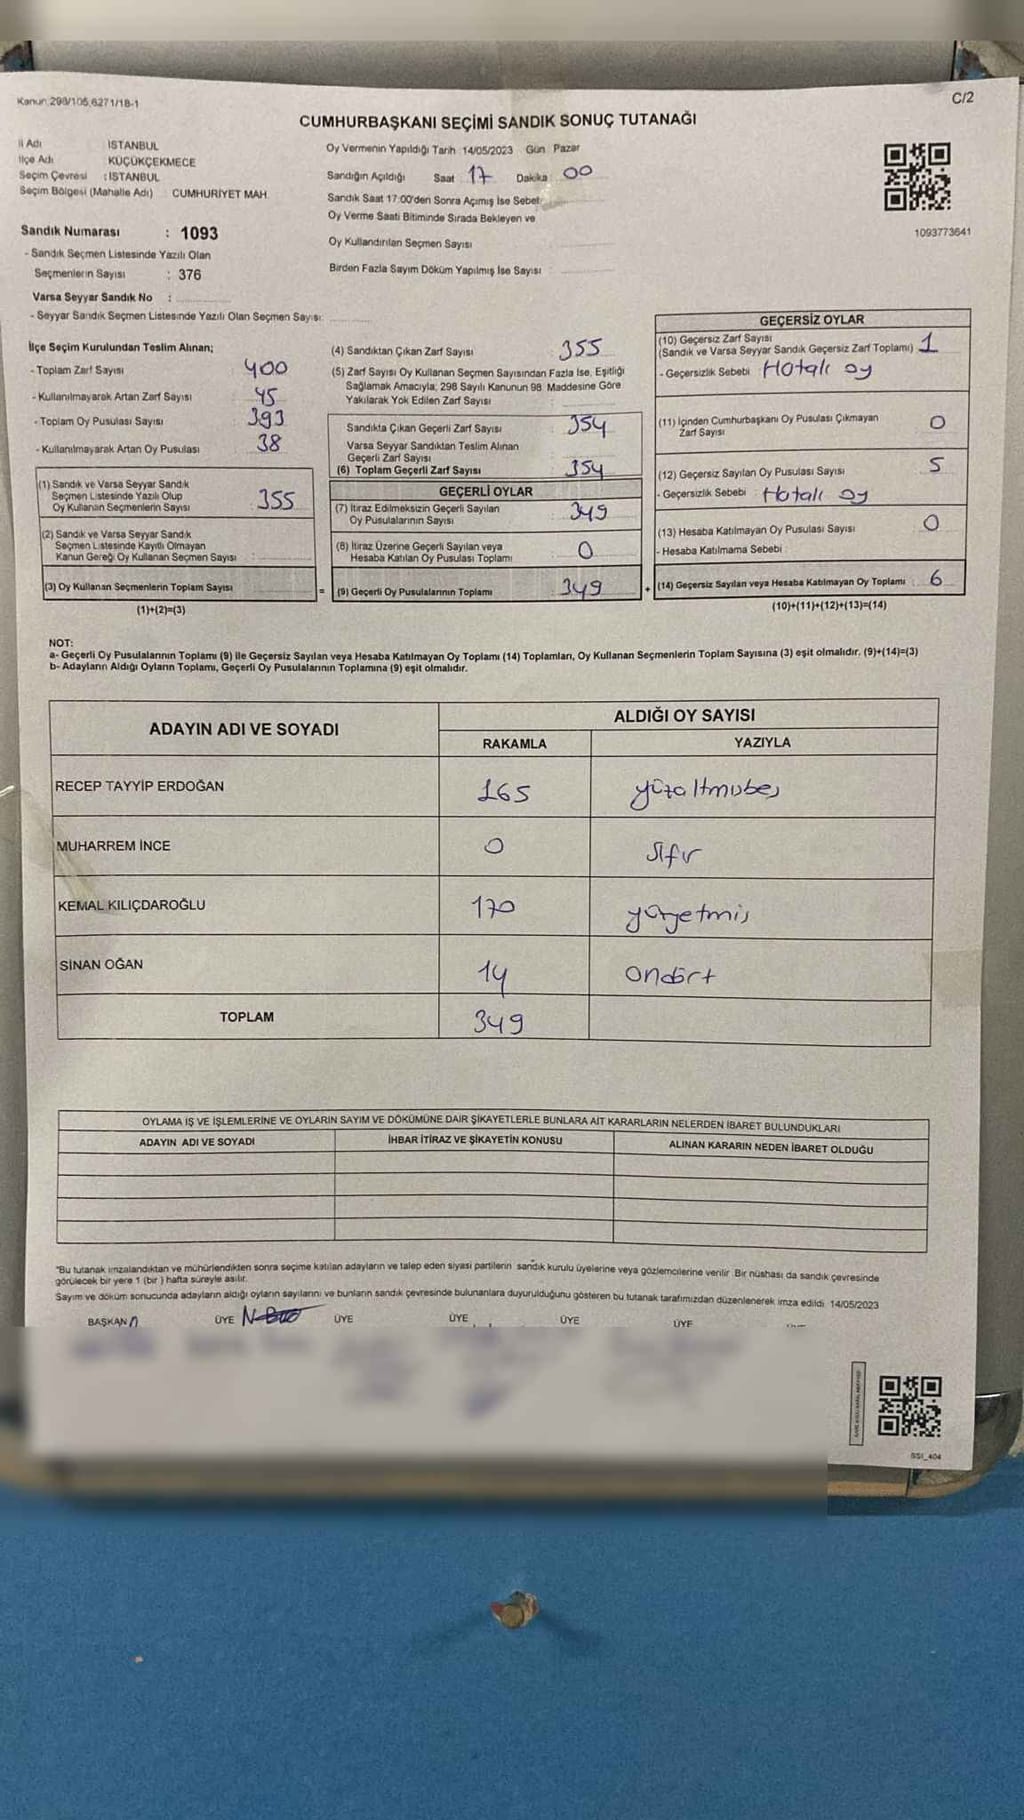 Kanun:298/105,6271/18-1
C/2
CUMHURBAŞKANI SEÇİMİ SANDIK SONUÇ TUTANAĞI
İl Adı İSTANBUL
İlçe Adı KÜÇÜKÇEKMECE
Seçim Çevresi : İSTANBUL
Seçim Bölgesi (Mahalle Adı) CUMHURİYET MAH.
Sandık Numarası : 1093
- Sandık Seçmen Listesinde Yazılı Olan
Seçmenlerin Sayısı : 376
Varsa Seyyar Sandık No :
- Seyyar Sandık Seçmen Listesinde Yazılı Olan Seçmen Sayısı:
Oy Vermenin Yapıldığı Tarih 14/05/2023 Gün Pazar
Sandığın Açıldığı Saat 17 Dakika 00
Sandık Saat 17:00'den Sonra Açımış İse Sebebi
Oy Verme Saati Bitiminde Sırada Bekleyen ve
Oy Kullandırılan Seçmen Sayısı
Birden Fazla Sayım Döküm Yapılmış İse Sayısı
1093773641
İlçe Seçim Kurulundan Teslim Alınan;
- Toplam Zarf Sayısı 400
- Kullanılmayarak Artan Zarf Sayısı 45
- Toplam Oy Pusulası Sayısı 393
- Kullanılmayarak Artan Oy Pusulası 38
(1) Sandık ve Varsa Seyyar Sandık
Seçmen Listesinde Yazılı Olup
Oy Kullanan Seçmenlerin Sayısı 355
(2) Sandık ve Varsa Seyyar Sandık
Seçmen Listesinde Kayıtlı Olmayan
Kanun Gereği Oy Kullanan Seçmen Sayısı
(3) Oy Kullanan Seçmenlerin Toplam Sayısı
(1)+(2)=(3)
(4) Sandıktan Çıkan Zarf Sayısı 355
(5) Zarf Sayısı Oy Kullanan Seçmen Sayısından Fazla İse, Eşitliği
Sağlamak Amacıyla; 298 Sayılı Kanunun 98. Maddesine Göre
Yakılarak Yok Edilen Zarf Sayısı
Sandıkta Çıkan Geçerli Zarf Sayısı 354
Varsa Seyyar Sandıktan Teslim Alınan
Geçerli Zarf Sayısı
(6) Toplam Geçerli Zarf Sayısı 354
GEÇERLİ OYLAR
(7) İtiraz Edilmeksizin Geçerli Sayılan
Oy Pusulalarının Sayısı 349
(8) İtiraz Üzerine Geçerli Sayılan veya
Hesaba Katılan Oy Pusulası Toplamı 0
= (9) Geçerli Oy Pusulalarının Toplamı 349
GEÇERSİZ OYLAR
(10) Geçersiz Zarf Sayısı
(Sandık ve Varsa Seyyar Sandık Geçersiz Zarf Toplamı) 1
- Geçersizlik Sebebi Hatalı oy
(11) İçinden Cumhurbaşkanı Oy Pusulası Çıkmayan
Zarf Sayısı 0
(12) Geçersiz Sayılan Oy Pusulası Sayısı 5
- Geçersizlik Sebebi Hatalı oy
(13) Hesaba Katılmayan Oy Pusulası Sayısı 0
- Hesaba Katılmama Sebebi
+ (14) Geçersiz Sayılan veya Hesaba Katılmayan Oy Toplamı 6
(10)+(11)+(12)+(13)=(14)
NOT:
a- Geçerli Oy Pusulalarının Toplamı (9) ile Geçersiz Sayılan veya Hesaba Katılmayan Oy Toplamı (14) Toplamları, Oy Kullanan Seçmenlerin Toplam Sayısına (3) eşit olmalıdır. (9)+(14)=(3)
b- Adayların Aldığı Oyların Toplamı, Geçerli Oy Pusulalarının Toplamına (9) eşit olmalıdır.
ADAYIN ADI VE SOYADI
ALDIĞI OY SAYISI
RAKAMLA YAZIYLA
RECEP TAYYİP ERDOĞAN 165 yüzaltmışbeş
MUHARREM İNCE 0 sıfır
KEMAL KILIÇDAROĞLU 170 yüzyetmiş
SİNAN OĞAN 14 ondört
TOPLAM 349
OYLAMA İŞ VE İŞLEMLERİNE VE OYLARIN SAYIM VE DÖKÜMÜNE DAİR ŞİKAYETLERLE BUNLARA AİT KARARLARIN NELERDEN İBARET BULUNDUKLARI
ADAYIN ADI VE SOYADI İHBAR İTİRAZ VE ŞİKAYETİN KONUSU ALINAN KARARIN NEDEN İBARET OLDUĞU
"Bu tutanak imzalandıktan ve mühürlendikten sonra seçime katılan adayların ve talep eden siyasi partilerin sandık kurulu üyelerine veya gözlemcilerine verilir. Bir nüshası da sandık çevresinde
görülecek bir yere 1 (bir) hafta süreyle asılır.
Sayım ve döküm sonucunda adayların aldığı oyların sayılarını ve bunların sandık çevresinde bulunanlara duyurulduğunu gösteren bu tutanak tarafımızdan düzenlenerek imza edildi. 14/05/2023
BAŞKAN ÜYE ÜYE ÜYE ÜYE ÜYE
SSI_404